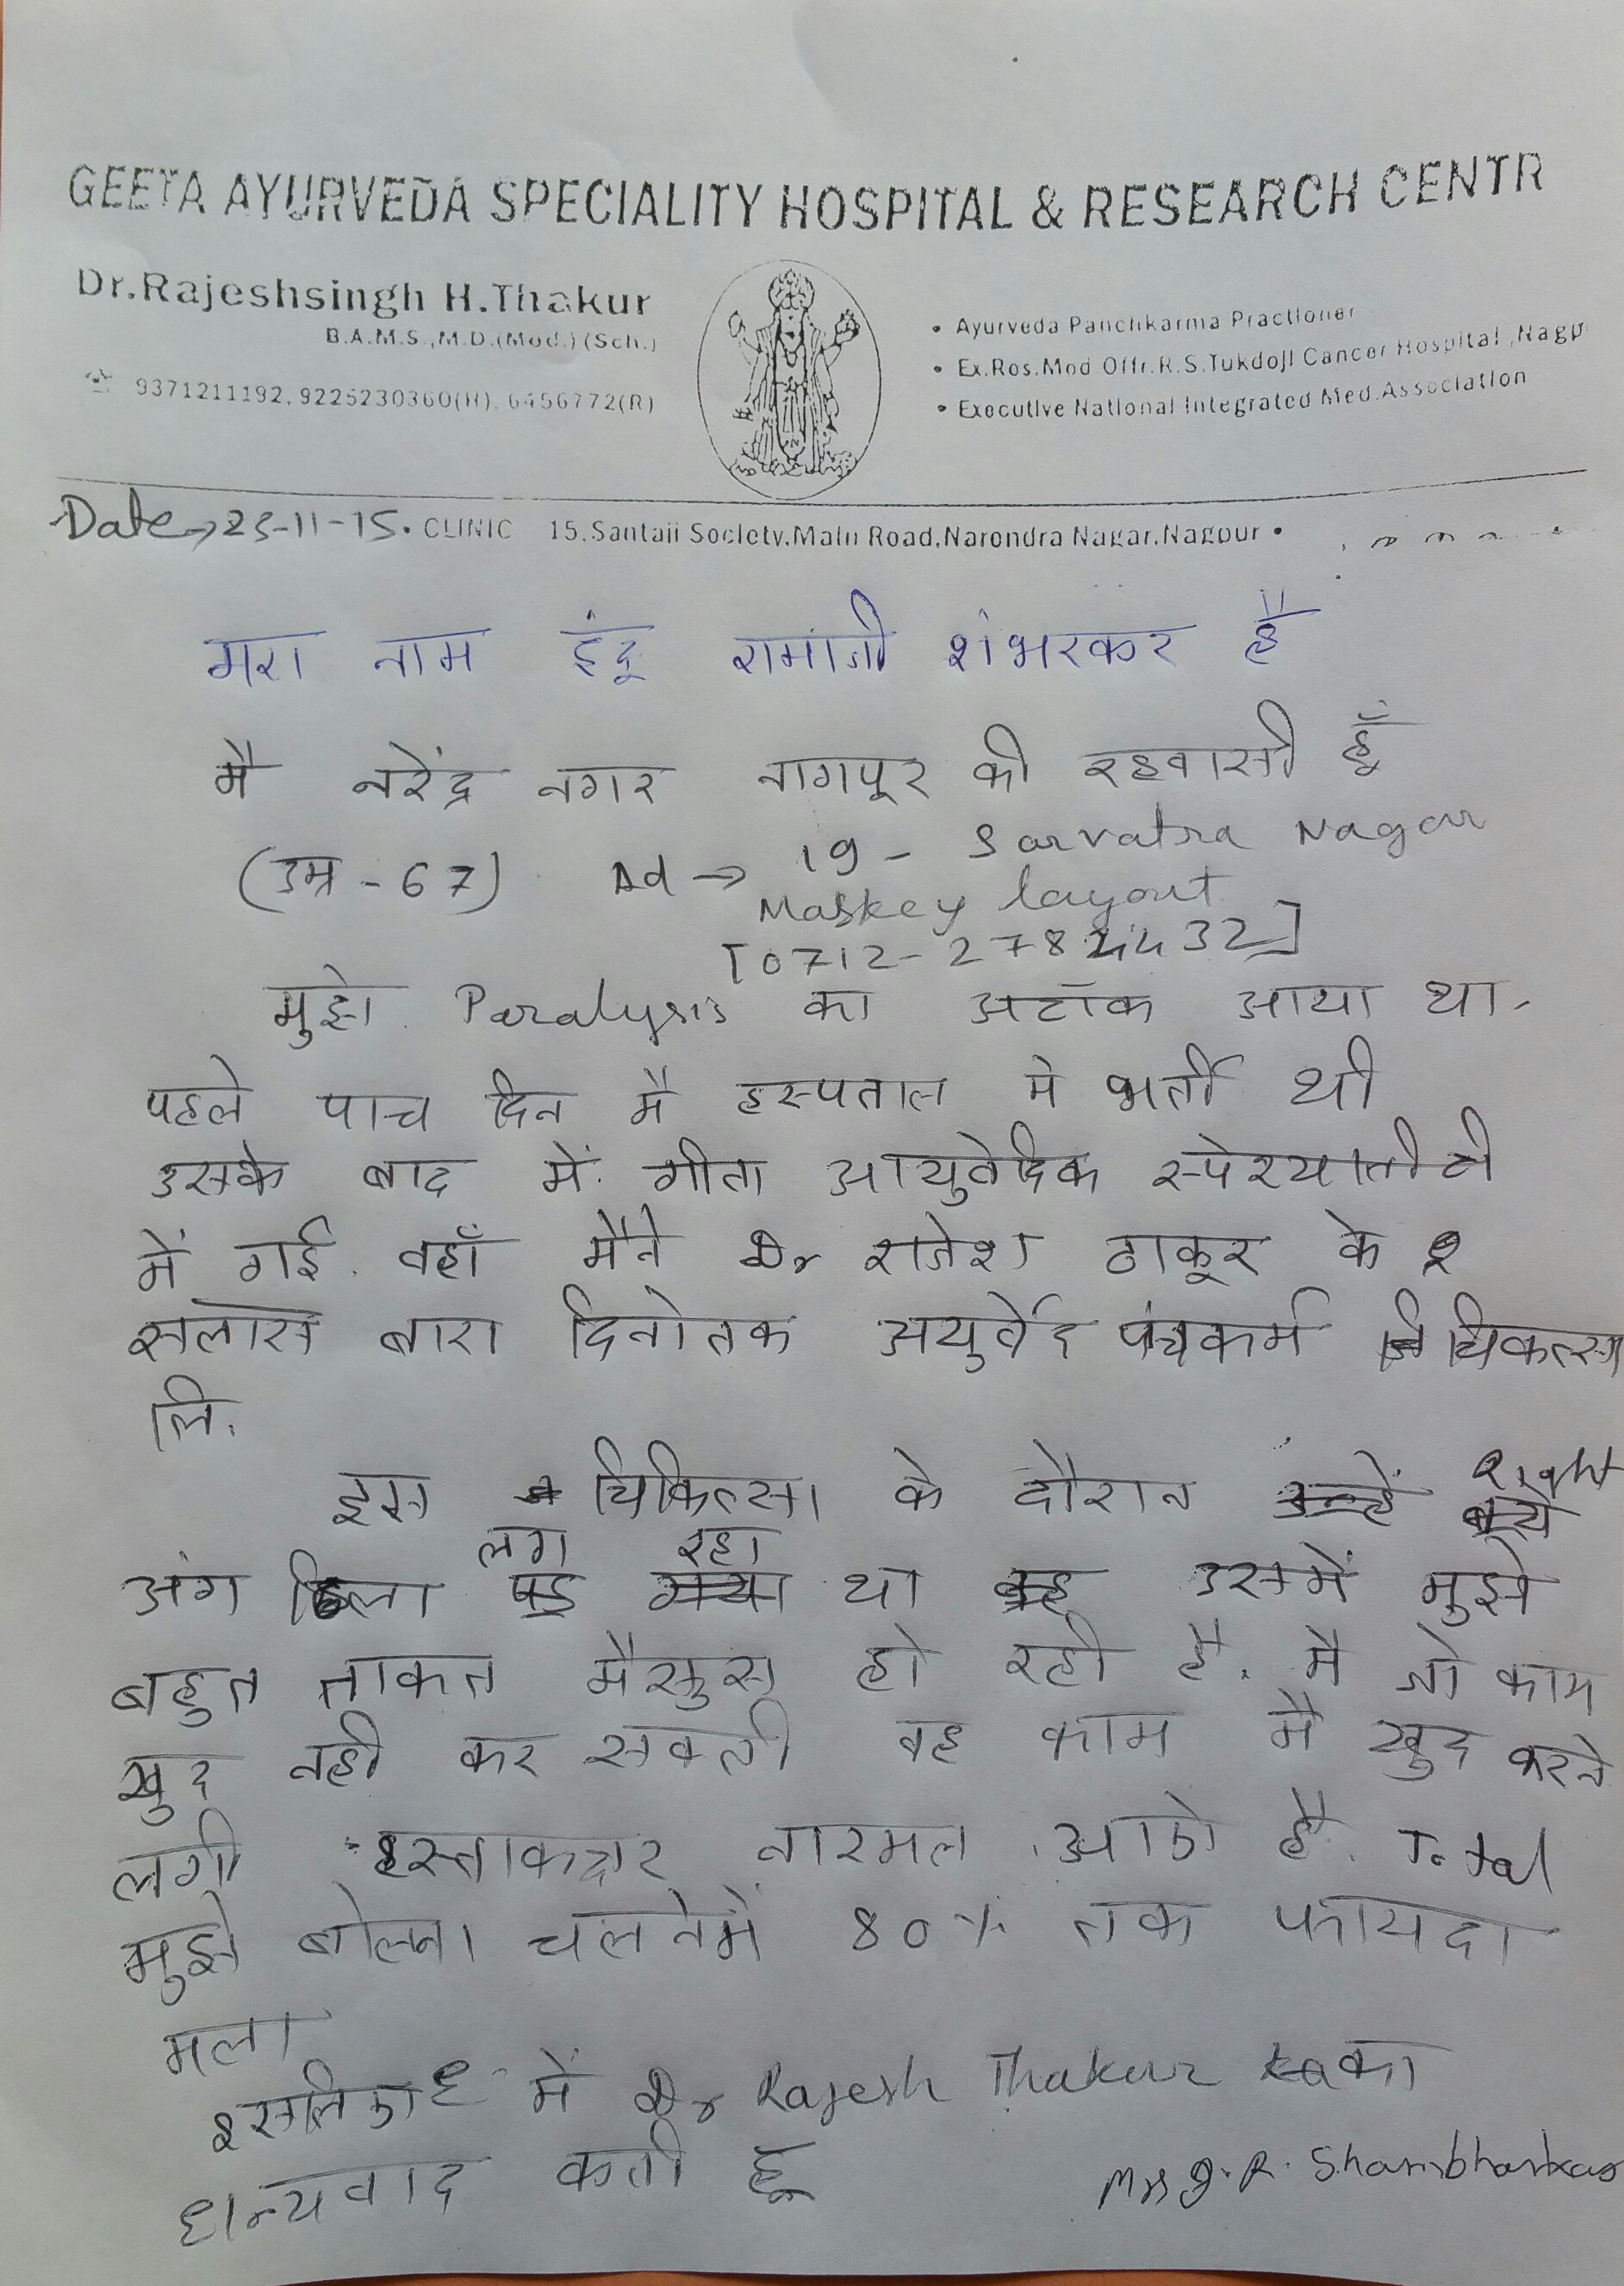 GEETA AYURVEDA SPECIALITY HOSPITAL & RESEARCH CENTR
Dr.Rajeshsingh H.Thakur
B.A.M.S.,M.D.(Med.)(Sch.)
9371211192, 9225230360(H), 6456772(R)
• Ayurveda Panchkarma Practioner
• Ex.Res.Med Offr.R.S.Tukdoji Cancer Hospital ,Nagp
• Executive National Integrated Med.Association
Date→ 23-11-15. CLINIC 15.Santaji Society,Main Road,Narendra Nagar,Nagpur •
मेरा नाम इंदू रामाजी शंभरकर है
मै नरेंद्र नगर नागपूर की रहवासी हूँ
(उम्र - 67) Ad → 19 - Sarvatra Nagar
Maskey layout
[0712-2784432]
मुझे Paralysis का अटॉक आया था.
पहले पाच दिन मै हस्पताल मे भर्ती थी
उसके बाद में गीता आयुर्वेदिक
में गई. वहाँ मैने Dr राजेश ठाकूर के
सलासे बारा दिनोतक अयुर्वेद पंचकर्म चिकित्सा
लि.
इस चिकित्सा के दौरान Right
लग रहा
अंग ढिला था उसमें मुझे
बहुत ताकत मैसुस हो रही है. मै जो काम
खुद नही कर सकती वह काम मै खुद करने
लगी नारमल है. Total
मुझे बोलना चलनेमें 80% तक फायदा
मला
में Dr Rajesh Thakur का
धन्यवाद करती हू
Mrs I. R. Shambharkar